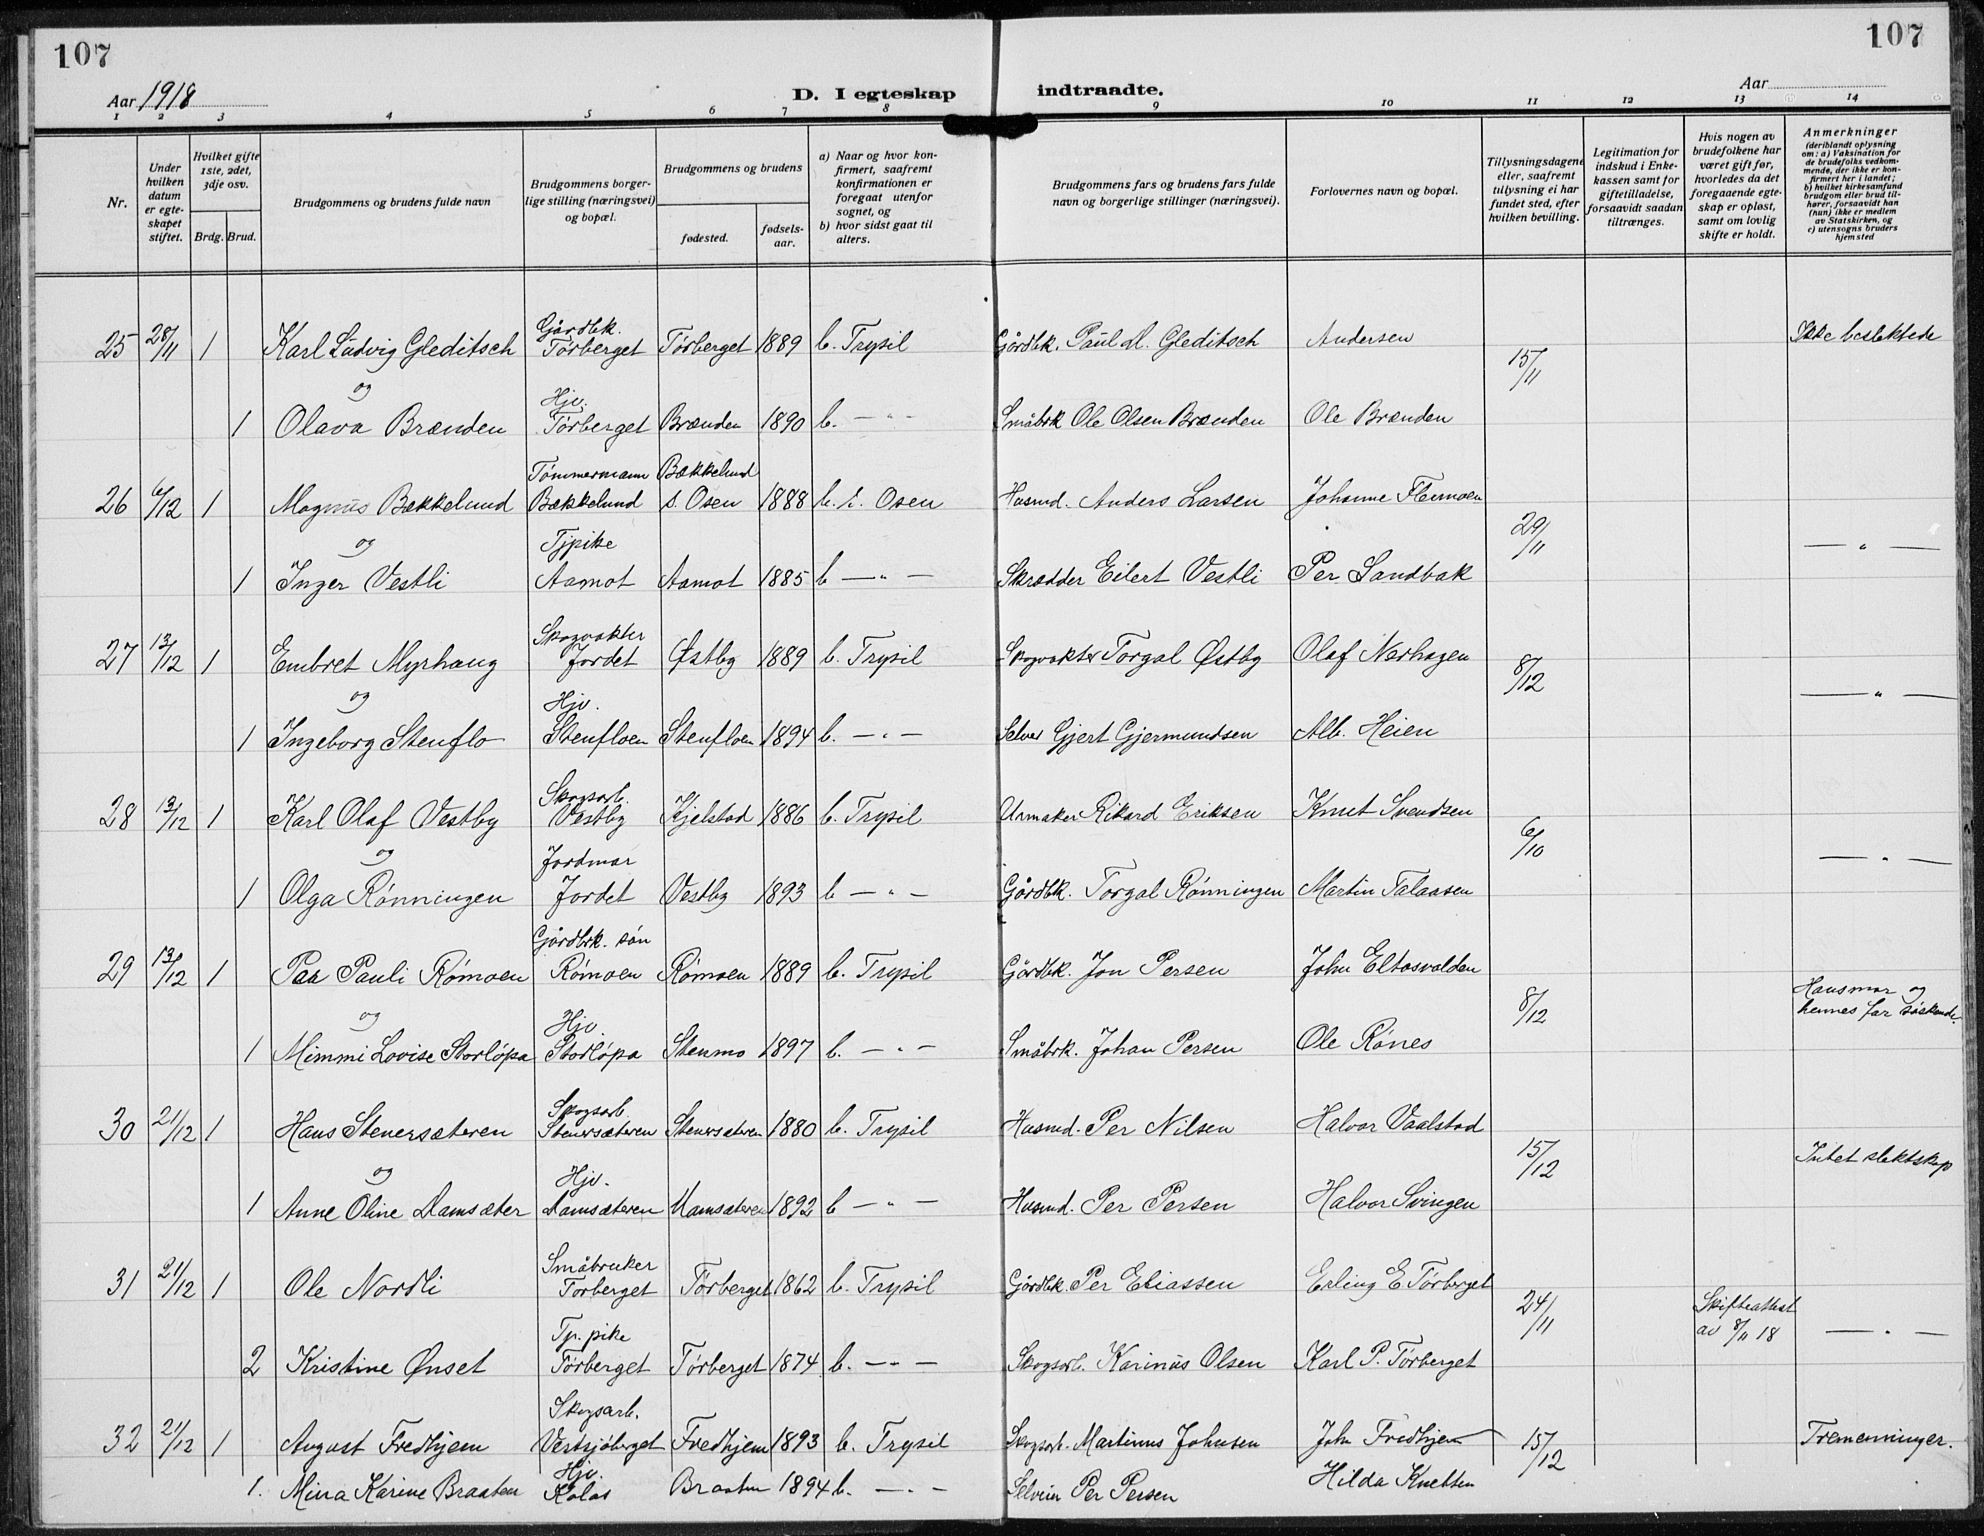 107
107
Aar 1918
D. I egteskap indtraadte.
Aar
1 2 3 4 5 6 7 8 9 10 11 12 13 14
Nr.
Under hvilken datum er egteskapet stiftet.
Hvilket gifte 1ste, 2det, 3dje osv.
Brdg. Brud.
Brudgommens og brudens fulde navn
Brudgommens borgerlige stilling (næringsvei) og bopæl.
Brudgommens og brudens
fødested.
fødselsaar.
a) Naar og hvor konfirmert, saafremt konfirmationen er foregaat utenfor sognet, og
b) hvor sidst gaat til alters.
Brudgommens fars og brudens fars fulde navn og borgerlige stillinger (næringsvei).
Forlovernes navn og bopæl.
Tillysningsdagene eller, saafremt tillysning ei har fundet sted, efter hvilken bevilling.
Legitimation for indskud i Enkekassen samt for giftetilladelse, forsaavidt saadan tiltrænges.
Hvis nogen av brudefolkene har været gift før, hvorledes da det foregaaende egteskap er opløst, samt om lovlig skifte er holdt.
Anmerkninger
(deriblandt oplysning om: a) Vaksination for de brudefolks vedkommende, der ikke er konfirmert her i landet;
b) hvilket kirkesamfund brudgom eller brud tilhører, forsaavidt han (hun) ikke er medlem av Statskirken, og
c) utensogns bruders hjemsted
25 28/11 1 Karl Ludvig Gleditsch Gårdbk. Törberget Törberget 1889 b. Trysil Gårdbk. Paul M. Gleditsch Andersen 15/11 Ikke beslektede
og
1 Olava Brænden Hjv. Törberget Brænden 1890 b. — „ — Småbrk Ole Olsen Brænden Ole Brænden
26 6/12 1 Magnus Bækkelund Tömmermann Bækkelund Bækkelund s. Osen 1888 b. i. Osen Husmd. Anders Larsen Johanne Flermoen 29/11 — „ —
og
1 Inger Vestli Tjpike Aamot Aamot 1885 b — „ — Skrædder Eilert Vestli Per Sandbak
27 13/12 1 Embret Myrhaug Skogvokter Jordet Østby 1889 b. Trysil Skogvokter Torgal Østby Olaf Nerhagen 8/12 — „ —
og
1 Ingeborg Stenflo Hjv. Stenfloen Stenfloen 1894 b. — „ — Selvei Gjert Gjermundsen Alb. Heien
28 13/12 1 Karl Olaf Vestby Skogsarb. Vestby Kjelstad 1886 b. Trysil Urmaker Rikard Eriksen Knut Svendsen 6/10 — „ —
og
1 Olga Rönningen Jordmor Jordet Vestby 1893 b — „ — Gårdbk. Torgal Rönningen Martin Talaasen
29 13/12 1 Paa Pauli Römoen Gårdbrk. sön Römoen Römoen 1889 b. Trysil Gårdbk. Jon Persen John Eltasvolden 8/12 Hansmor og hennes far söskende.
og
1 Mimmi Lovise Storlöpa Hjv. Storlöpa Stenmo 1897 b. — „ — Småbrk. Johan Persen Ole Rönes
30 21/12 1 Hans Stenersæteren Skogsarb. Stenersæteren Stenersæteren 1880 b. Trysil Husmd. Per Nilsen Halvor Vaalstad 15/12 Intet slektskap
og
1 Anne Oline Damsæter Hjv. Damsæteren Damsæteren 1892 b — „ — Husmd. Per Persen Halvor Svingen
31 21/12 1 Ole Nordli Småbruker Törberget Törberget 1862 b. Trysil Gårdbk. Per Eliassen Erling E Törberget 24/11 Skifteattest av 8/11 18 — „ —
2 Kristine Ønset Tj. pike Törberget Törberget 1874 b. — „ — Skogsarb. Karinus Olsen Karl P. Törberget
32 21/12 1 August Fredhjem Skogsarb. Vestsjöberget Fredhjem 1893 b. Trysil Skogsarb. Martinus Johnsen John Fredhjem 15/12 Tremenninger.
1. Mina Karine Braaten Hjv. Kolos Braaten 1894 b. — „ — Selveier Per Persen Hilda Knetten